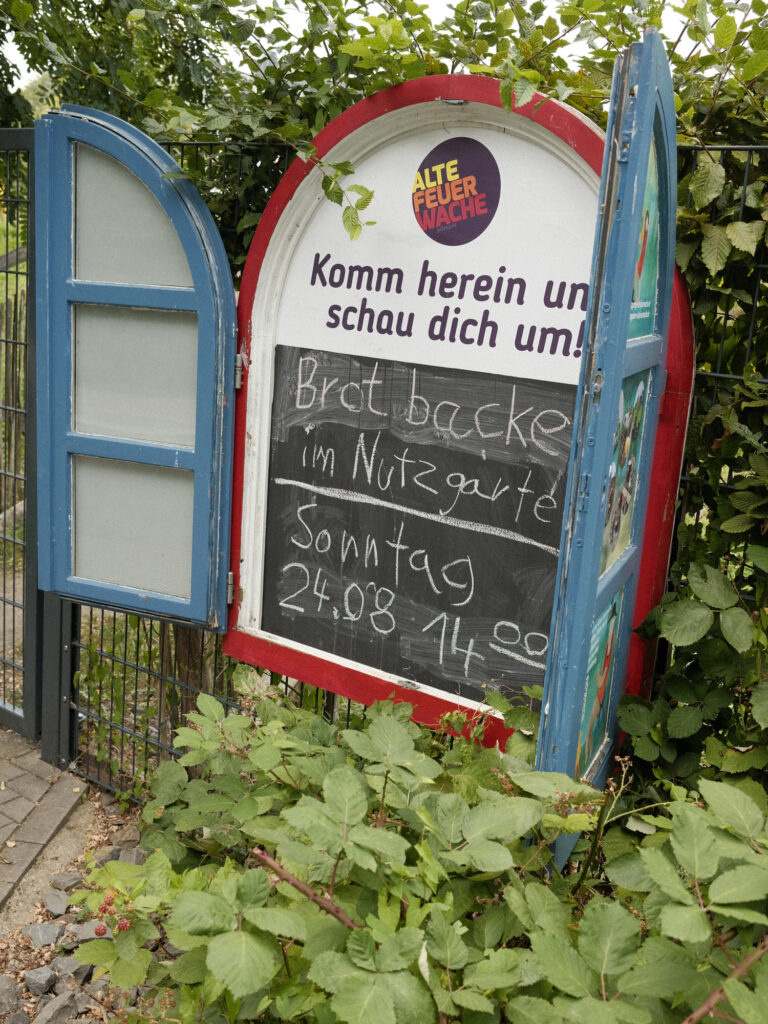 ALTE
FEUER
WACHE
Komm herein un
schau dich um!
Brot backe
im Nutzgarte
Sonntag
24.08 14 00